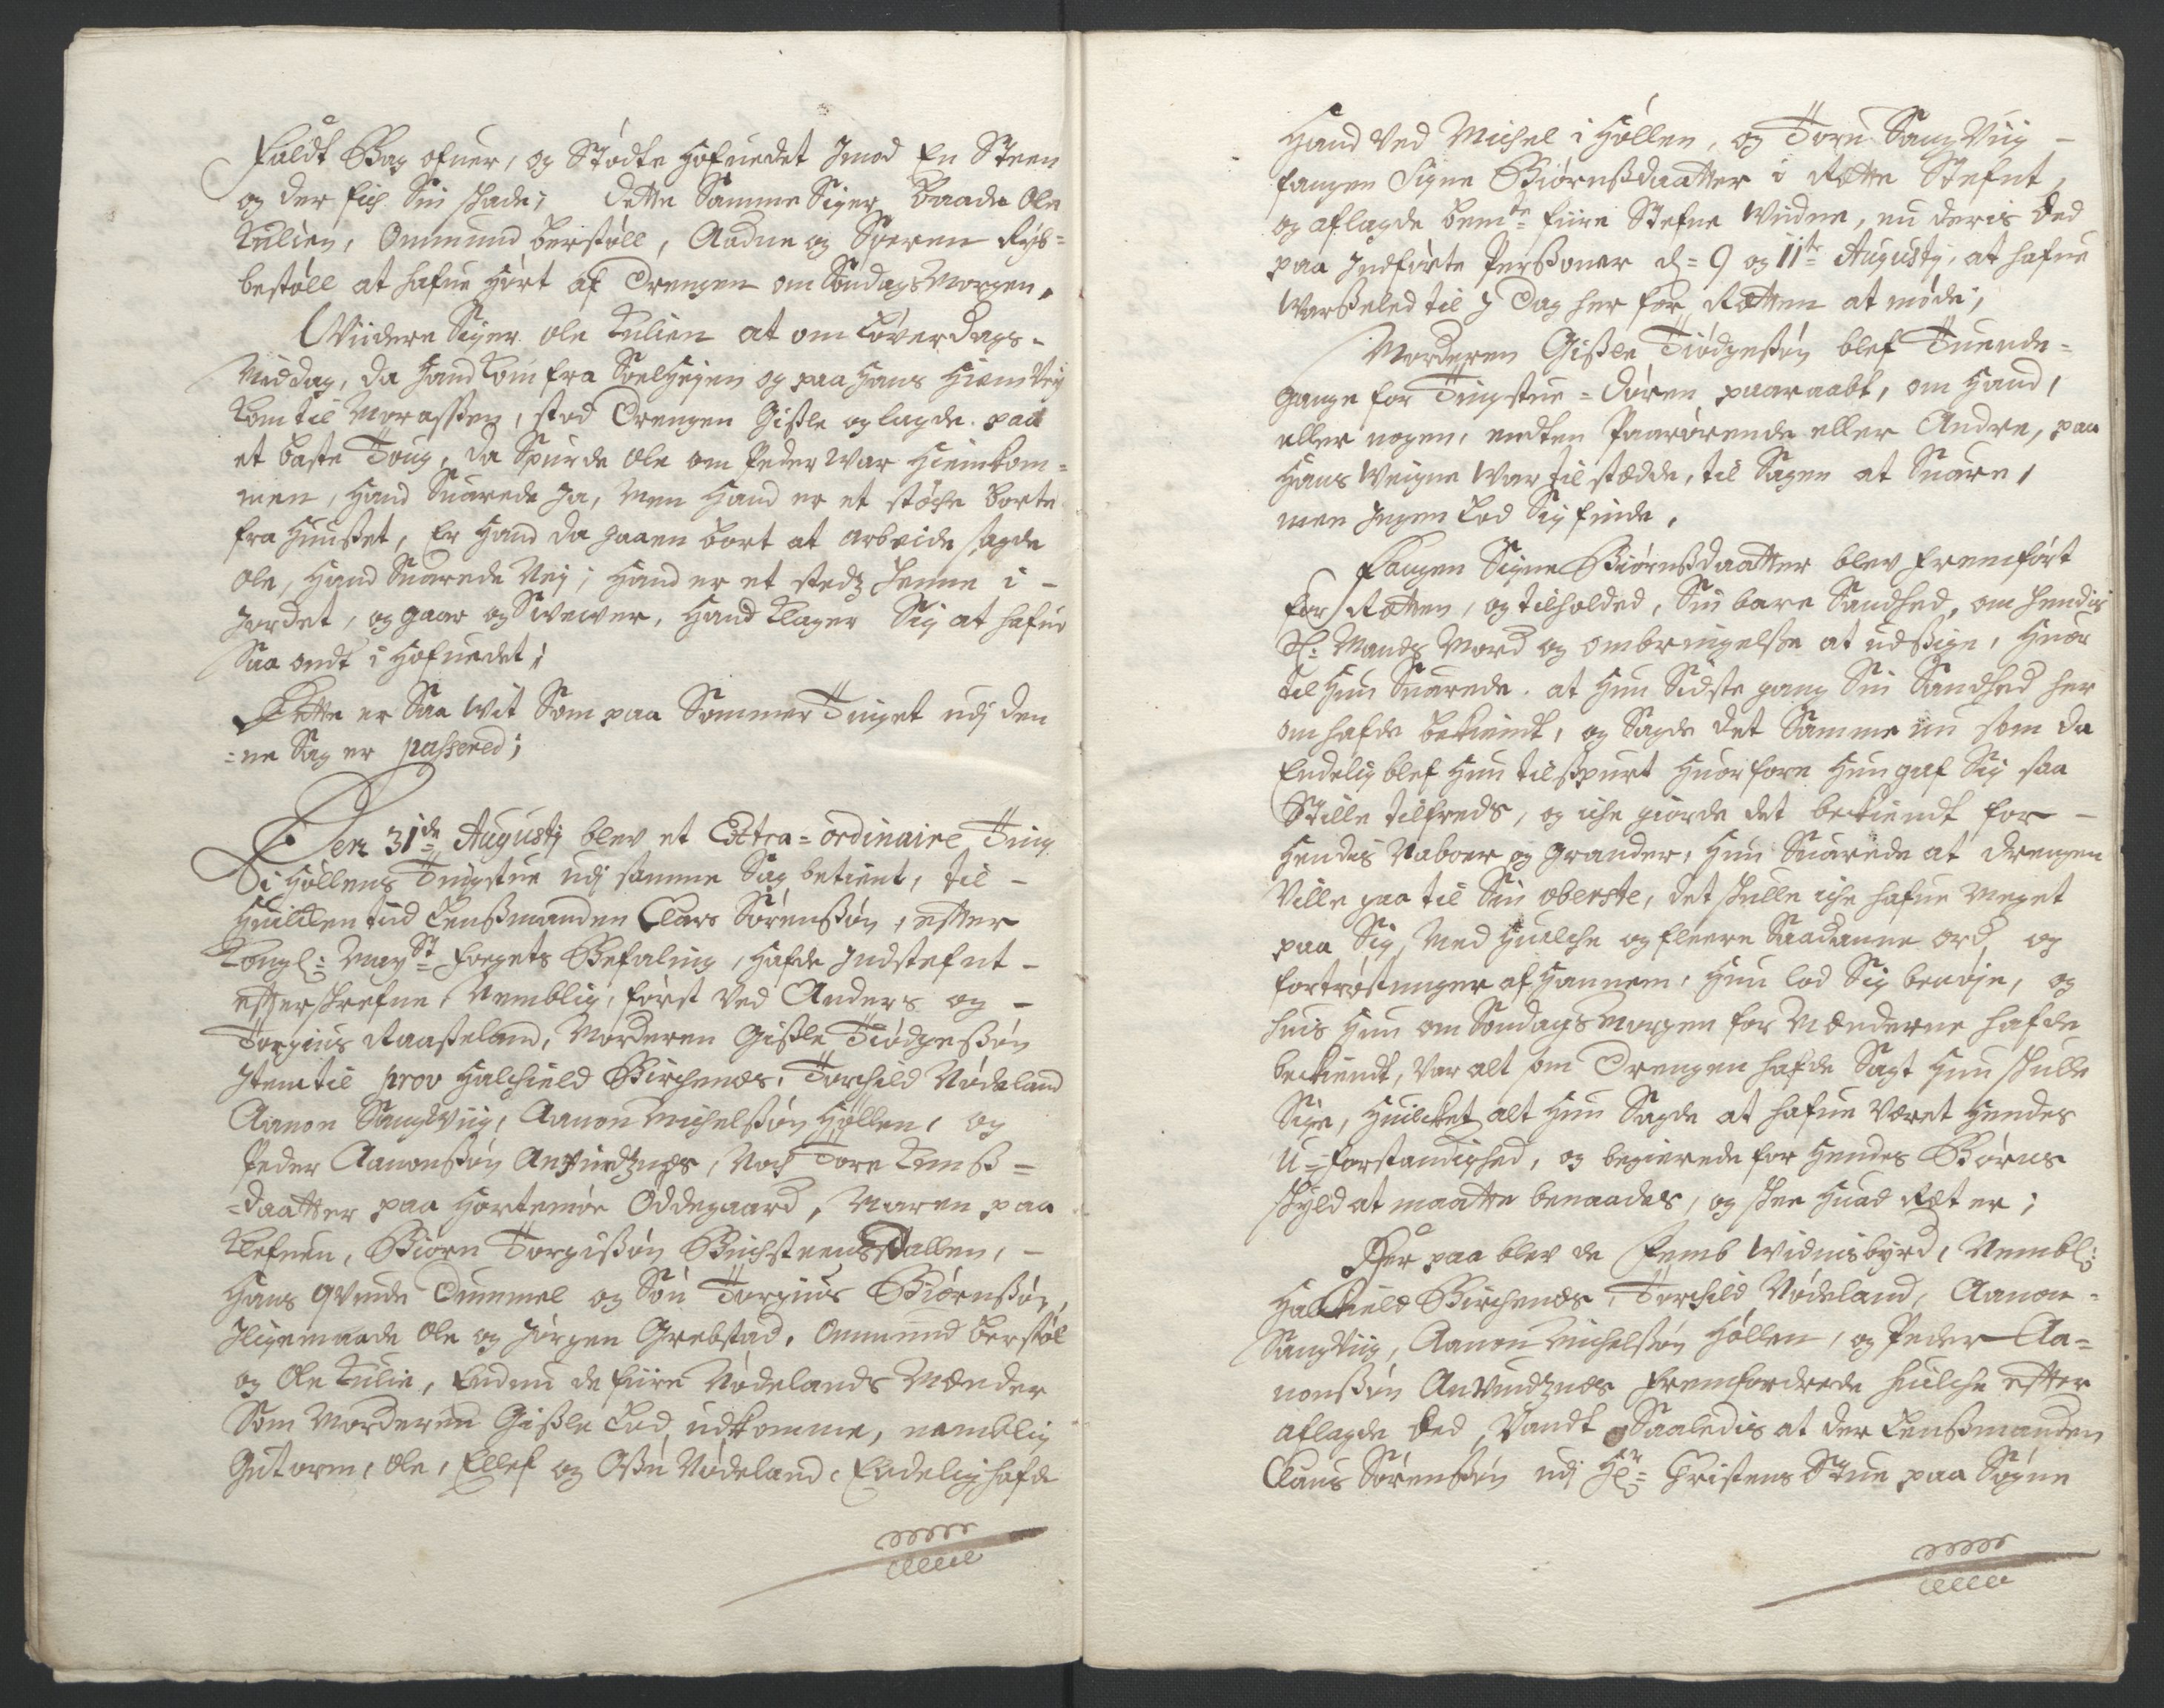 faldt Bag ofuer, og Stødte Hofuedet Imod En Steen
og der fich Sin skade; dette Samme Siger Baade Ole
Kulien, Ommund Berstøll, Aadne og Søeren Røs=
bestøll at hafue hørt af Drengen om Søndags Morgen,
Wiidere Siger Ole Kulien at om Løverdags-
Middag, da Hand kom fra Soelhejen og paa Hans Hiemvej
kom til Morassen, stod Drengen Gissle og lagde paa
et baste Toug, da Spurde Ole om Peder war Hiemkom=
men, Hand Suarede Ja, Men Hand er et støche borte
fra Huusset, Er Hand da gaaen bort at arbeide sagde
Ole, Hand Suarede Nej; Hand er et stedz henne i -
Jordet, og gaar og Swewer, Hand klager Sig at hafue
Saa ondt i Hofuedet;
Dette er Saa wit Som paa Sommer Tinget udj den
=ne Sag er passered;
Den 31de Augustj blev et Extra=ordinaire Ting
i Høllens Tingstue udj samme Sag betient, til -
Huilcken tiid Lenssmanden Claus Sørenssøn, efter
Kongl: Maystz Fogets Befaling, hafde Indstefnt -
efterskrefne, Nemblig, først Ved Anders og -
Torgius Raasseland, Morderen Gissle Tiødgessøn
Item til prov Halchield Birchenes, Torchild Nødeland
Aanon Sangwiig, Aanon Michelssøn Høllen, og
Peder Aanonssøn Anvindznes, Noch Tore Knuss=
=daatter paa Hortemoe Oddegaard, Maren paa
Klefuen, Biørn Torgissøn Buchsteensdallen, -
Hans Qvinde Dummel og Søn Torgius Biørnssøn,
Iligemaade Ole og Jørgen Grebstad, Ommund Berstøl
og Ole Kulie, Endnu de fiire Nødelands Mænder
Som Morderen Gissle Lod udkomme, nemblig
Gutorm, Ole, Ellef og Ossu Nødeland, Endelig hafde
Hand Ved Michel i Høllen, og Tore Sangviig -
fangen Signe Biørnssdaatter i Rette Stefnt,
og aflagde bemte fiire Stefne Widne, nu deris Eed
paa Indførte Perssoner d= 9 og 11te Augustj, at hafue
Warsseled til J Dag her for Retten at møde;
Morderen Gissle Tiødgessøn blef Tuende=
gange for Tingstue=Døren paaraabt, om Hand,
eller nogen, endten Paarørende eller Andre, paa
Hans Weigne War tilstædde, til Sagen at Suare,
men Ingen Lod Sig finde,
Fangen Signe Biørnssdaatter blev fremført
for Retten, og tilholded, Sin bare Sandhed, om hendis
Sl: Mands Mord og ombringelsse at udssige, Huor
til Hun Suarede, at Hun Sidste gang Sin Sandhed her
om hafde bekiendt, og Sagde det Samme nu som da
Endelig blef Hun tilsspurt Huorfore Hun gaf Sig saa
Stille tilfreds, og iche giorde det beckiendt for -
Hendes Naboer og Grander, Hun Suarede at Drengen
Ville gaa til Sin oberste, det skulle iche hafue Meget
paa Sig, Med Huilche og fleere Saadanne ord, og
fortrøstninger af Hannem, Hun lod Sig benøje, og
huis Hun om Søndags Morgen for Mænderne hafde
beckiendt, Var alt som Drengen hafde Sagt Hun skulle
Sige, Huilcket alt Hun Sagde at hafue Været Hendes
U=forstandighed, og begierede for Hendes Børns
skyld at maatte benaades, og skee Huad Ret er;
Her paa blev de Femb Widnisbyrd, Nembl:
Halchield Birchenes, Torchild Nødeland, Aanon-
Sangviig, Aanon Michelssøn Høllen, og Peder Aa=
nonssøn Anvindznes fremfordrede huilche efter
aflagde Eed, Vandt Saaledis at der Lenssmanden
Claus Sørenssøn udj Hr= Christens Stue paa Søgne